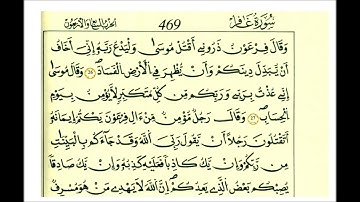 سُورَةُ غَافِرٍ
469
الحزب السابع والأربعون
وَقَالَ فِرْعَوْنُ ذَرُونِي أَقْتُلْ مُوسَىٰ وَلْيَدْعُ رَبَّهُ إِنِّيَ أَخَافُ
أَنْ يُبَدِّلَ دِينَكُمْ وَأَنْ يُظْهِرَ فِي الْأَرْضِ الْفَسَادَ وَقَالَ مُوسَىٰ
إِنِّي عُذْتُ بِرَبِّي وَرَبِّكُمْ مِنْ كُلِّ مُتَكَبِّرٍ لَا يُؤْمِنُ بِيَوْمِ
الْحِسَابِ وَقَالَ رَجُلٌ مُؤْمِنٌ مِنْ ءَالِ فِرْعَوْنَ يَكْتُمُ إِيمَانَهُ
أَتَقْتُلُونَ رَجُلًا أَنْ يَقُولَ رَبِّيَ اللَّهُ وَقَدْ جَاءَكُمْ بِالْبَيِّنَاتِ
مِنْ رَبِّكُمْ وَإِنْ يَكُ كَاذِبًا فَعَلَيْهِ كَذِبُهُ وَإِنْ يَكُ صَادِقًا
يُصِبْكُمْ بَعْضُ الَّذِي يَعِدُكُمْ إِنَّ اللَّهَ لَا يَهْدِي مَنْ هُوَ مُسْرِفٌ